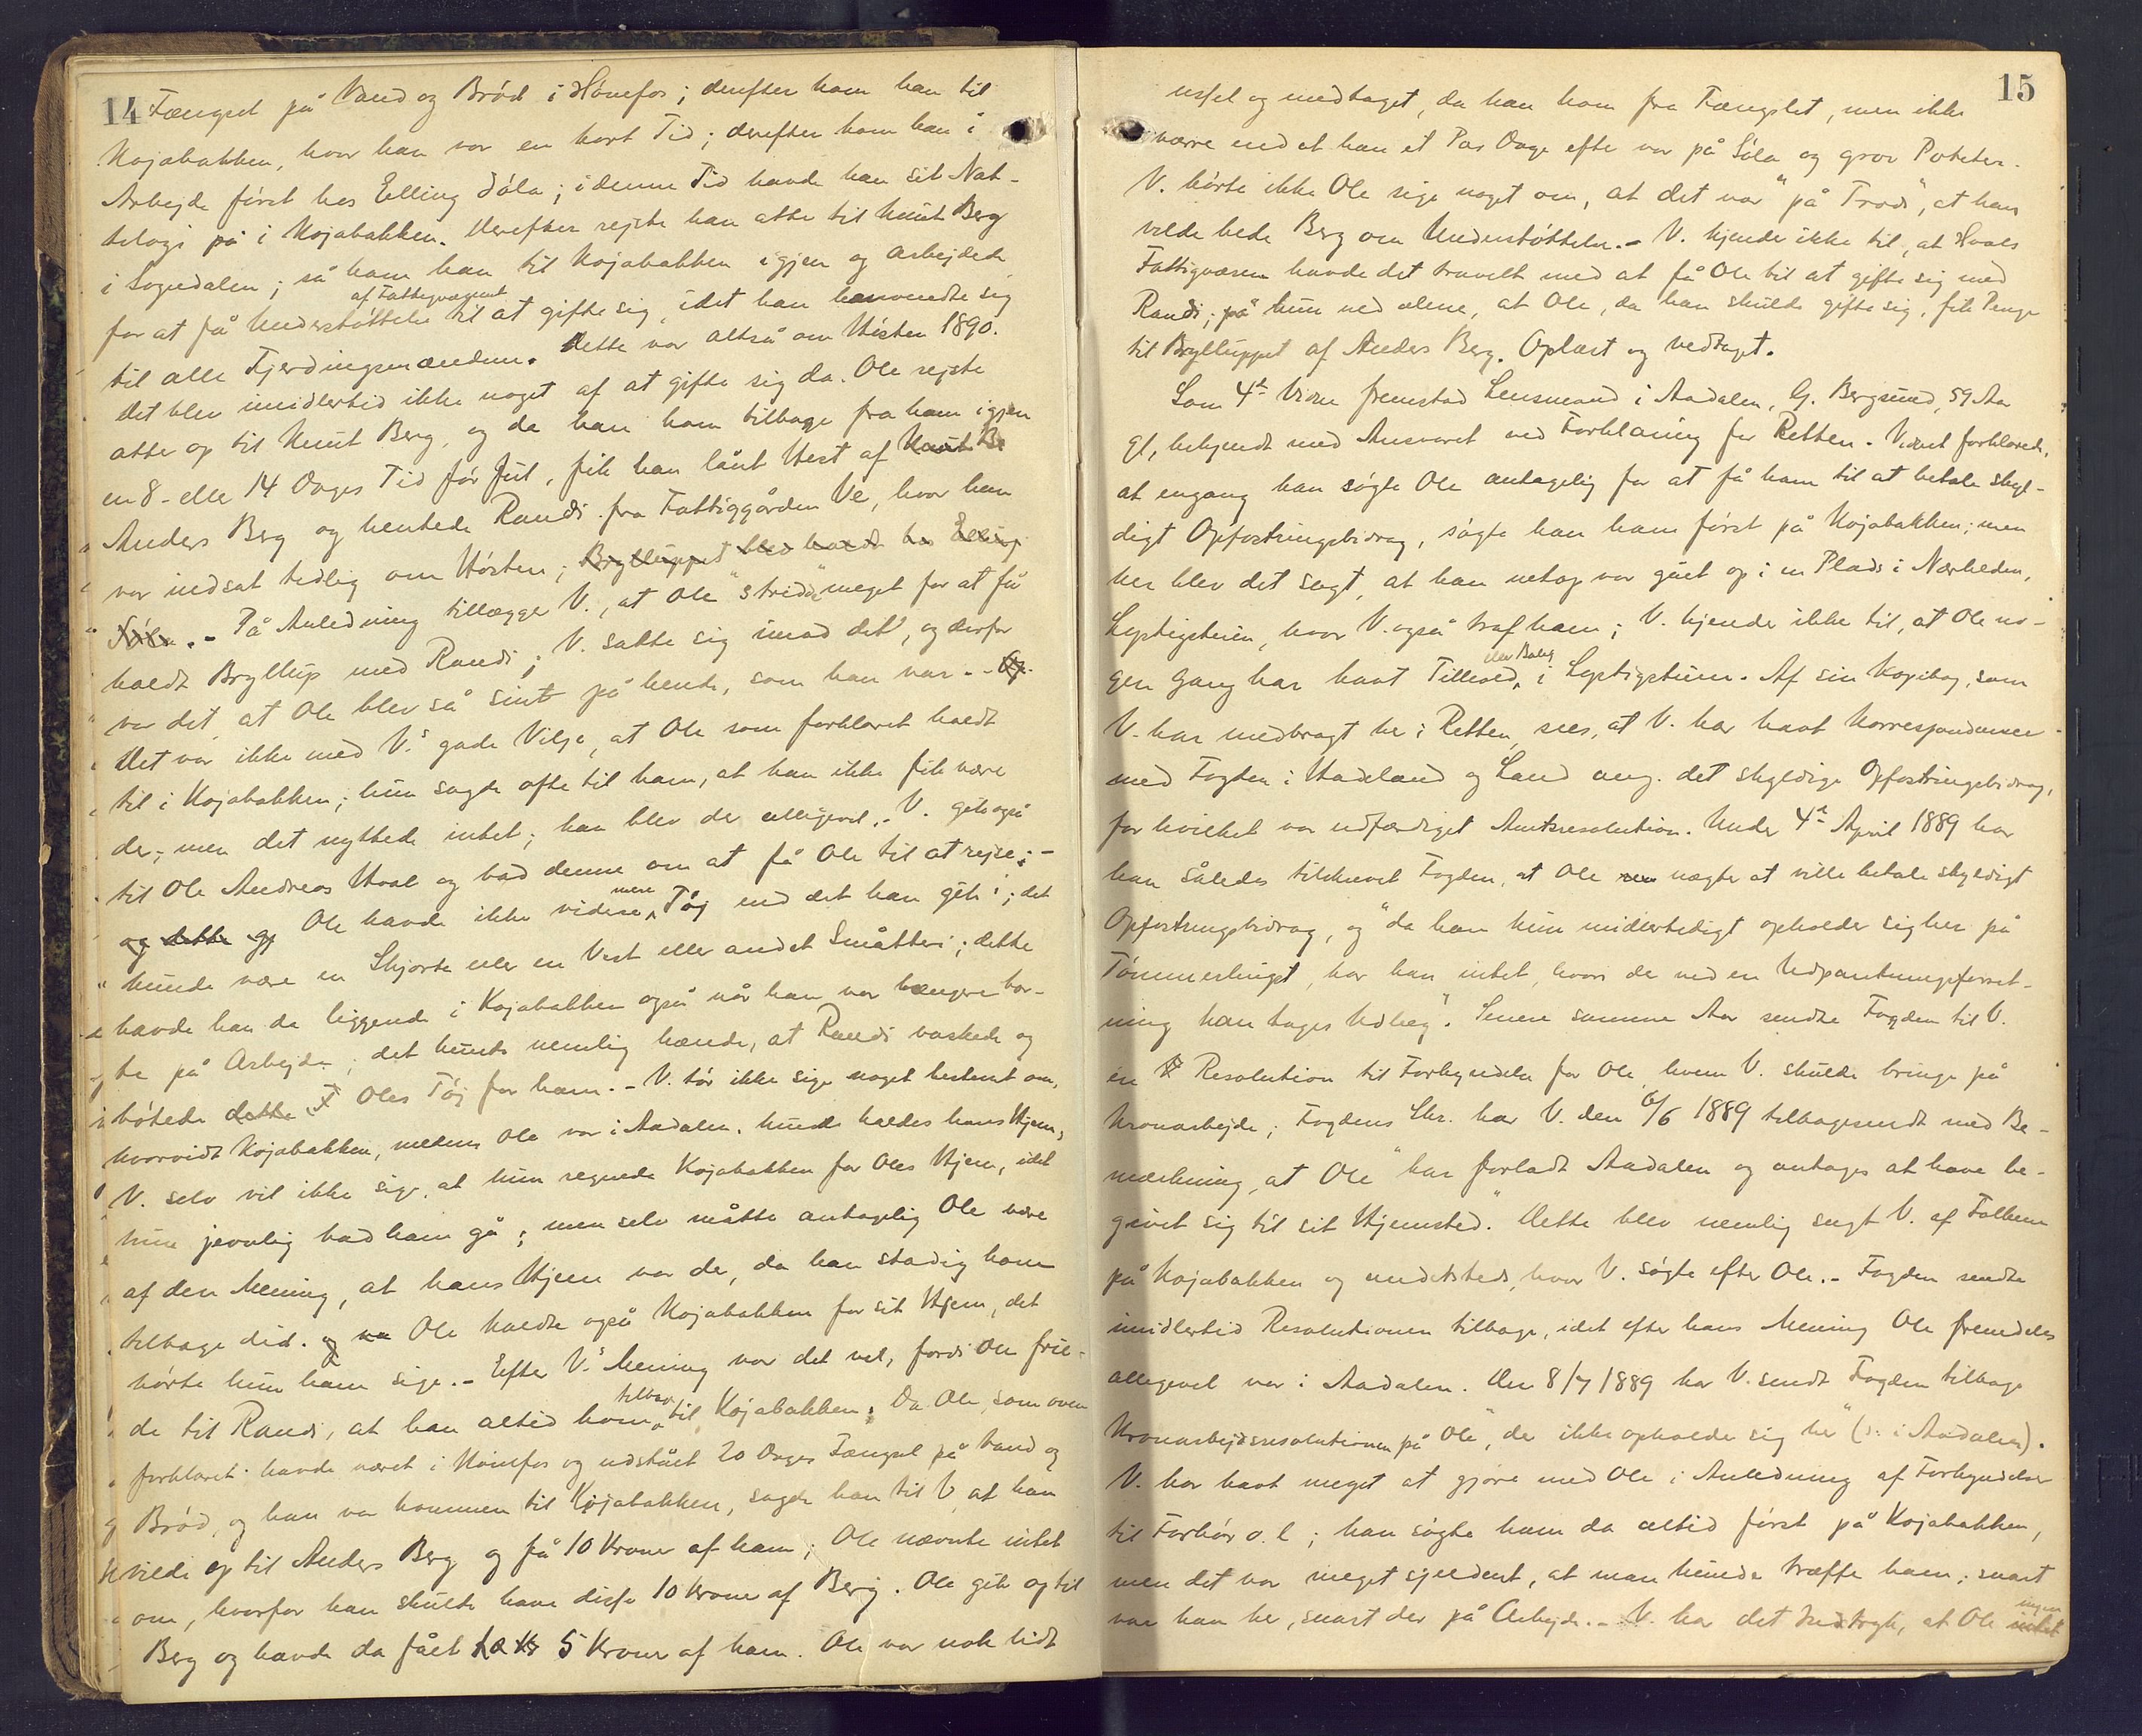 14
Fængsel på Vand og Brød i Hønefos; derefter kom han til
Kojabakken, hvor han var en kort Tid; derefter kom han i
Arbejde først hos Elling Søla; i denne Tid havde han sit Nat-
telogi på i Kojabakken. Derefter rejste han atter til Knut Berg
i Sognedalen; så kom han til Kojabakken igjen og arbejdede
for at få Understøttelse af Fattigvæsenet til at gifte sig, idet han henvendte sig
til alle Fjerdingsmændene. Dette var altså om Høsten 1890.
Det blev imidlertid ikke noget af at gifte sig da. Ole rejste
atter op til Knut Berg, og da han kom tilbage fra ham igjen
en 8- eller 14 Dages Tid før Jul, fik han lånt Hest af Knut Be
Anders Berg og hentede Randi fra Fattiggården Ve, hvor hun
var indsat tidlig om Høsten; Brylluppet blev havde hos Elling
Søla. - På Anledning tillægger V., at Ole "stridde" meget for at få
holdt Bryllup med Randi; V. satte sig imod det, og derfor
var det, at Ole blev så sint på hende, som han var. -
Det var ikke med V.s gode Vilje, at Ole som forklaret holdt
til i Kojabakken; hun sagde ofte til ham, at han ikke fik være
der, men det nyttede intet; han blev der alligevel. - V. gik også
til Ole Andreas Hval og bad denne om at få Ole til at rejse; -
og dette gj Ole havde ikke videre mere Tøj end det han gik i; det
kunde være en Skjorte eller en Vest eller andet Småtteri; dette
havde han da liggende i Kojabakken også når han var længere bor-
te på Arbejde; det hændte nemlig hænde, at Randi vaskede og
bøtede dette T Oles Tøj for ham. - V. tør ikke sige noget bestemt om,
hvorvidt Kojabakken, medens Ole var i Aadalen, kunde kaldes hans Hjem,
V. selv vil ikke sige, at hun regnede Kojabakken for Oles Hjem, idet
hun jevnlig bad ham gå; men selv måtte antagelig Ole være
af den Mening, at hans Hjem var der, da han stadig kom
tilbage did. og na Ole kaldte også Kojabakken for sit Hjem, det
hørte hun ham sige. - Efter V.s Mening var det vel, fordi Ole frie-
de til Randi, at han altid kom tilbage til Kojabakken. Da Ole, som oven
forklaret havde været i Hønefos og udstået 20 Dages Fængsel på Vand og
Brød, og han var kommen til Kojabakken, sagde han til V, at han
vilde op til Anders Berg og få 10 Kroner af ham; Ole nævnte intet
om, hvorfor han skulde have disse 10 Kroner af Berg. Ole gik op til
Berg og havde da fået 5 Kroner af ham. Ole var nok lidt
15
ussel og medtaget, da han kom fra Fængslet, men ikke
værre end at han et Par Dage efter var på Søla og grov Poteter.
V. hørte ikke Ole sige noget om, at det var "på Trods", at han
vilde bede Berg om Understøttelse. - V. kjender ikke til, at Hvals
Fattigvæsen havde det travelt med at få Ole til at gifte sig med
Randi; på hun ved alene, at Ole, da han skulde gifte sig, fik Penge
til Brylluppet af Anders Berg. Oplæst og vedtaget.
Som 4de Vidne fremstod Lensmand i Aadalen, G. Bergsund, 59 Aar
gl, bekjendt med Ansvaret ved Forklaring for Retten. Vidnet forklarede,
at engang han søgte Ole antagelig for at få ham til at betale skyl-
digt Opfostringsbidrag, søgte han ham først på Kojabakken; men
her blev det sagt, at han netop var gået op i en Plads i Nærheden,
hvor V. også traf ham; V. kjender ikke til, at Ole no-
gen Gang har havt Tilhold eller Bolig i. Af sin Kopibog, som
V. har medbragt her i Retten, sees, at V. har havt Korrespondance
med Fogden i Hadeland og Land ang. det skyldige Opfostringsbidrag,
for hvilket var udfærdiget Amtsresolution. Under 4de April 1889 har
han således tilskrevet Fogden, at Ole nægter at ville betale skyldigt
Opfostringsbidrag, og "da han kun midlertidigt opholder sig her på
Tømmerhugst, har han intet, hvori der ved en Udpantningsforret-
ning kan tages Udlæg". Senere samme Aar sendte Fogden til V.
en Resolution til Forkyndelse for Ole, hvem V. skulde bringe på
Kronarbejde; Fogdens Skr. har V. den 6/6 1889 tilbagesendt med Be-
mærkning, at Ole "har forladt Aadalen og antages at have be-
givet sig til sit Hjemsted." Dette blev nemlig sagt V. af Folkene
på Kojabakken og andetsteds, hvor V. søgte efter Ole. - Fogden sendte
imidlertid Resolutionen tilbage, idet efter hans Mening Ole fremdeles
allegevel var i Aadalen. Den 8/7 1889 har V. sendt Fogden tilbage
Kronarbejdsresolutionen på Ole, "der ikke opholder sig her" (d: i Aadalen).
V. har havt meget at gjøre med Ole i Anledning af Forkyndelser
til Forhør o. l; han søgte ham da altid først på Kojabakken,
men det var meget sjeldent, at man kunde træffe ham; snart
var han her, snart der på Arbejde. - V. har det Indtryk, at Ole intet ingen